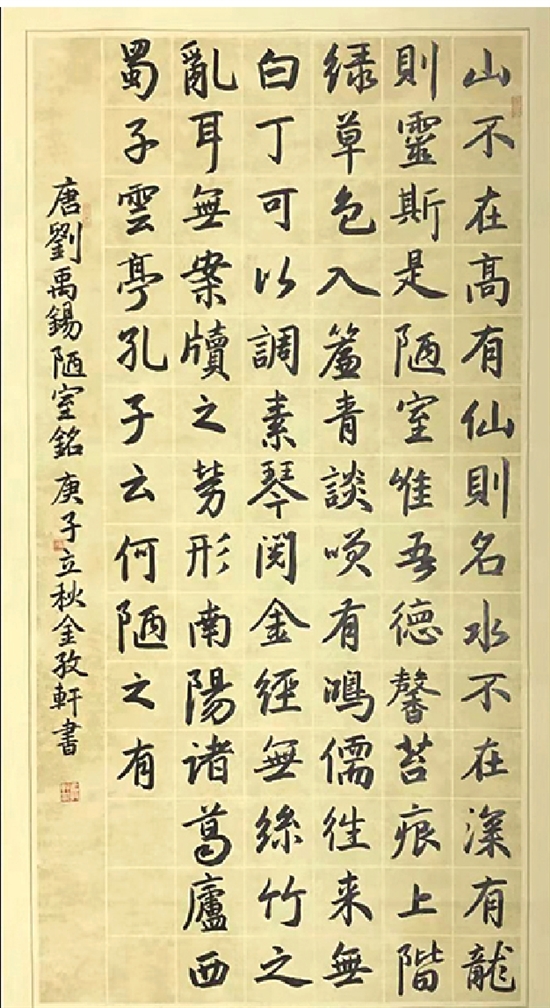 山不在高有仙則名水不在深有龍
則靈斯是陋室惟吾德馨苔痕上階
緑草色入簾青談唉有鴻儒往来無
白丁可以調素琴閱金經無絲竹之
亂耳無案牘之勞形南陽诸葛廬西
蜀子雲亭孔子云何陋之有
唐劉禹錫陋室銘 庚子立秋金孜軒書